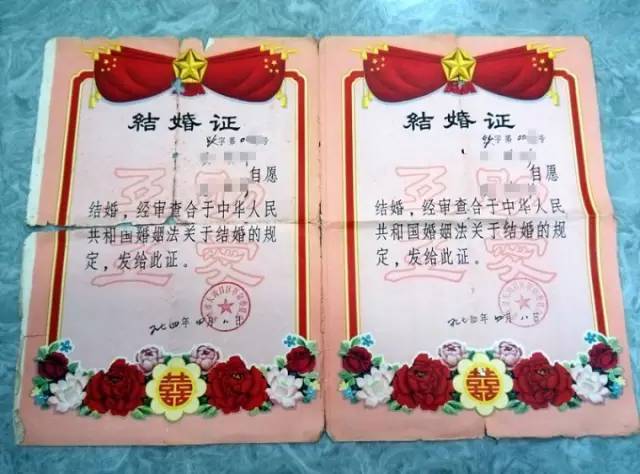 結婚证
字第 号
自愿
结婚，经审查合于中华人民
共和国婚姻法关于结婚的规
定，发给此证。
一九七四年 四月 八日
囍
結婚证
字第 号
自愿
结婚，经审查合于中华人民
共和国婚姻法关于结婚的规
定，发给此证。
一九七四年 四月 八日
囍